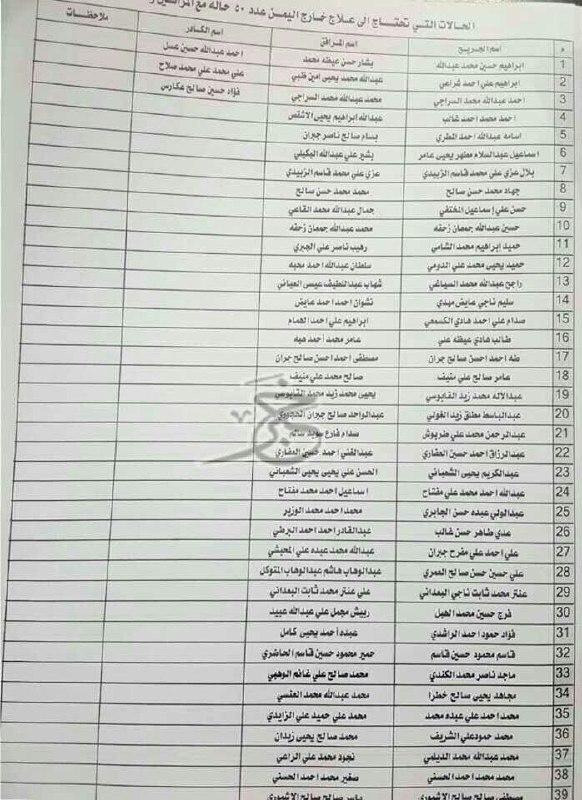 الحالات التي تحتاج الى علاج خارج اليمن عدد ٥٠ حاله مع المرافقين
م اسم الجريح اسم المرافق اسم الكادر ملاحظات
1 ابراهيم حسين محمد عبدالله بشار حسن عيظه محمد احمد عبدالله حسين عسل
2 ابراهيم علي احمد شراعي عبدالله محمد يحيى امين ظبي علي محمد علي محمد صلاح
3 احمد عبدالله محمد السراجي محمد عبدالله محمد السراجي فؤاد حسين صالح عكارس
4 احمد محمد احمد غالب عبدالله ابراهيم يحيى الاشقص
5 اسامه عبدالله احمد المطري بسام صالح ناصر جبران
6 اسماعيل عبدالسلام مطهر يحيى عامر بشير علي عبدالله البكيلي
7 بلال عزي علي محمد قاسم الزبيدي عزي علي محمد قاسم الزبيدي
8 جهاد محمد حسن صالح محمد محمد حسن صالح
9 حسن علي إسماعيل المختفي جمال عبدالله محمد القاعي
10 حسين عبدالله جمعان زحقه محمد عبدالله جمعان زحقه
11 حميد ابراهيم محمد الشامي رهيب ناصر علي الجبري
12 حميد يحيى محمد علي الدومي سلطان عبدالله احمد محبه
13 راجح عبدالله محمد السياغي شهاب عبداللطيف عيسى العياني
14 سليم ناجي عايض مهدي نشوان احمد احمد عايض
15 صدام علي احمد هادي الكسمعي ابراهيم علي احمد الهمام
16 طالب هادي عيظه علي عامر محمد أحمد هبه
17 طه احمد احسن صالح جمران مصطفى احمد احسن صالح جمران
18 عامر صالح علي منيف صالح محمد علي منيف
19 عبدالاله محمد زيد القابوسي يحيى محمد زيد محمد القابوسي
20 عبدالباسط مطلق زيد الغولي عبدالواحد صالح جبران
21 عبدالرحمن محمد علي طربوش صدام فارع سالم
22 عبدالرزاق احمد حسين الحفاري عبدالغني احمد حسين العفاري
23 عبدالكريم يحيى الشعباني الحسن علي يحيى يحيى الشعباني
24 عبدالله احمد محمد علي مفتاح اسماعيل احمد محمد مفتاح
25 عبدالولي عبده حسن الجابري محمد احمد محمد الوزير
26 عدي طاهر حسن غالب عبدالقادر احمد احمد البرطي
27 علي احمد علي مفرح جبران عبدالله محمد عبده علي المحبشي
28 علي حسين حسن صالح العمري عبدالوهاب هاشم عبدالوهاب المتوكل
29 عنتر محمد ثابت ناجي البعداني علي عنتر محمد ثابت البعداني
30 فرج حسين محمد الهبل ربيش مجمل علي عبدالله عبيد
31 فؤاد حمود احمد الراشدي عبده أحمد يحيى كامل
32 قاسم محمود حسين قاسم حمير محمود حسين قاسم الحاضري
33 ماجد ناصر محمد الكندي محمد صالح علي غانم الوهبي
34 مجاهد يحيى صالح خطرا محمد عبدالله محمد العفسي
35 محمد احمد علي عبده محمد محمد علي حميد علي الزايدي
36 محمد حمودعلي الشريف محمد صالح يحيى زيدان
37 محمد عبدالله محمد الديلمي نجود محمد علي الراعي
38 محمد محمد احمد الحسني صغير محمد احمد الحسني
39 مصطفى صالح صالح الاشموري صالح صالح الاشموري